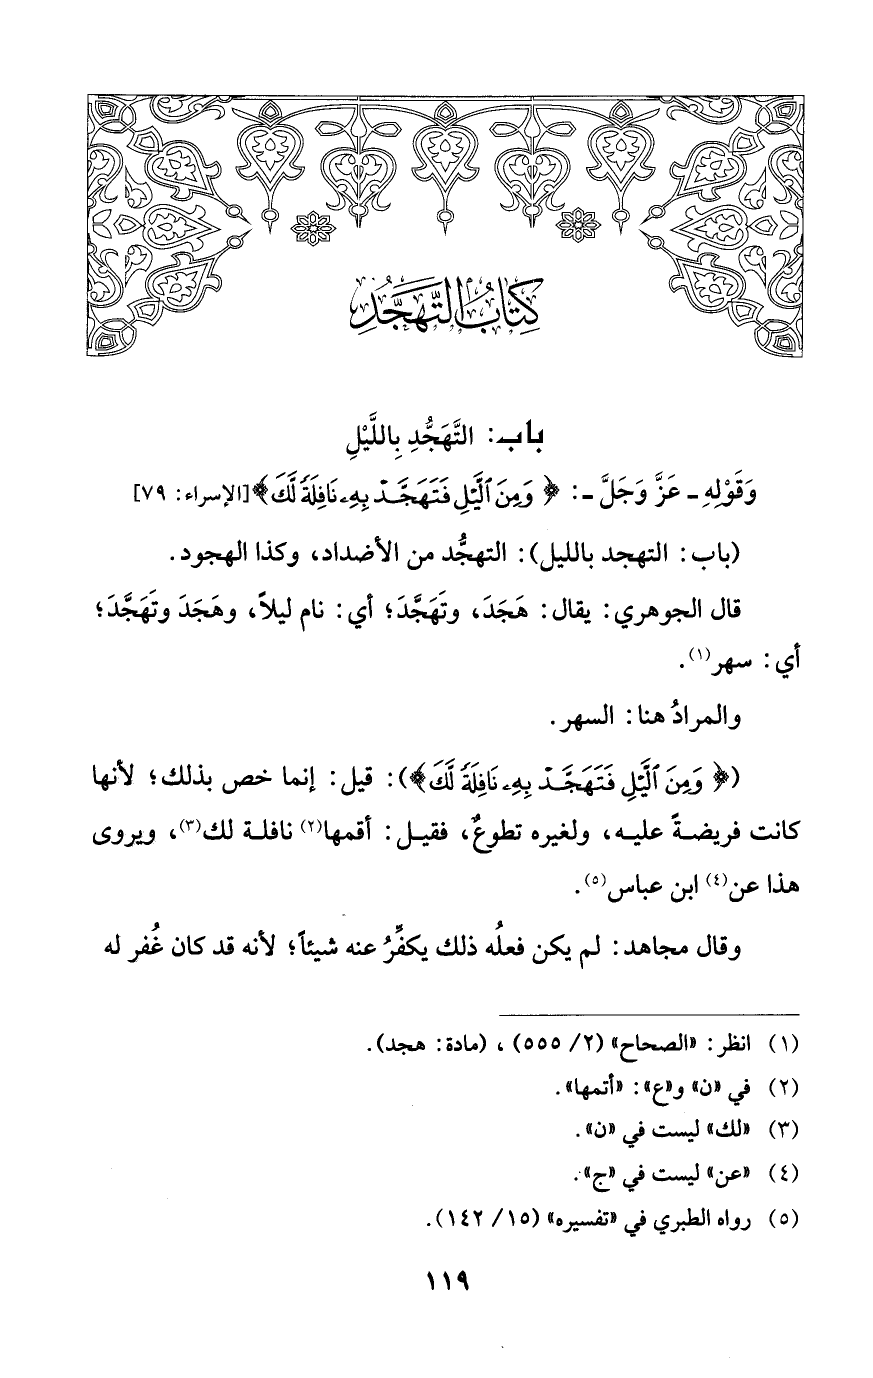 كِتَابُ التَّهَجُّدِ
باب: التَّهَجُّدِ بِاللَّيْلِ
وَقَوْلِهِ - عَزَّ وَجَلَّ -: ﴿وَمِنَ ٱلَّيْلِ فَتَهَجَّدْ بِهِۦ نَافِلَةً لَّكَ﴾ [الإسراء: ٧٩]
(باب: التهجد بالليل): التهجُّد من الأضداد، وكذا الهجود.
قال الجوهري: يقال: هَجَدَ، وتَهَجَّدَ؛ أي: نام ليلاً، وهَجَدَ وتَهَجَّدَ؛
أي: سهر(١).
والمرادُ هنا: السهر.
(﴿وَمِنَ ٱلَّيْلِ فَتَهَجَّدْ بِهِۦ نَافِلَةً لَّكَ﴾): قيل: إنما خص بذلك؛ لأنها
كانت فريضةً عليه، ولغيره تطوعٌ، فقيل: أقمها(٢) نافلة لك(٣)، ويروى
هذا عن(٤) ابن عباس(٥).
وقال مجاهد: لم يكن فعلُه ذلك يكفِّرُ عنه شيئاً؛ لأنه قد كان غُفر له
(١) انظر: «الصحاح» (٢/ ٥٥٥)، (مادة: هجد).
(٢) في «ن» و«ع»: «أتمها».
(٣) «لك» ليست في «ن».
(٤) «عن» ليست في «ج».
(٥) رواه الطبري في «تفسيره» (١٥/ ١٤٢).
١١٩